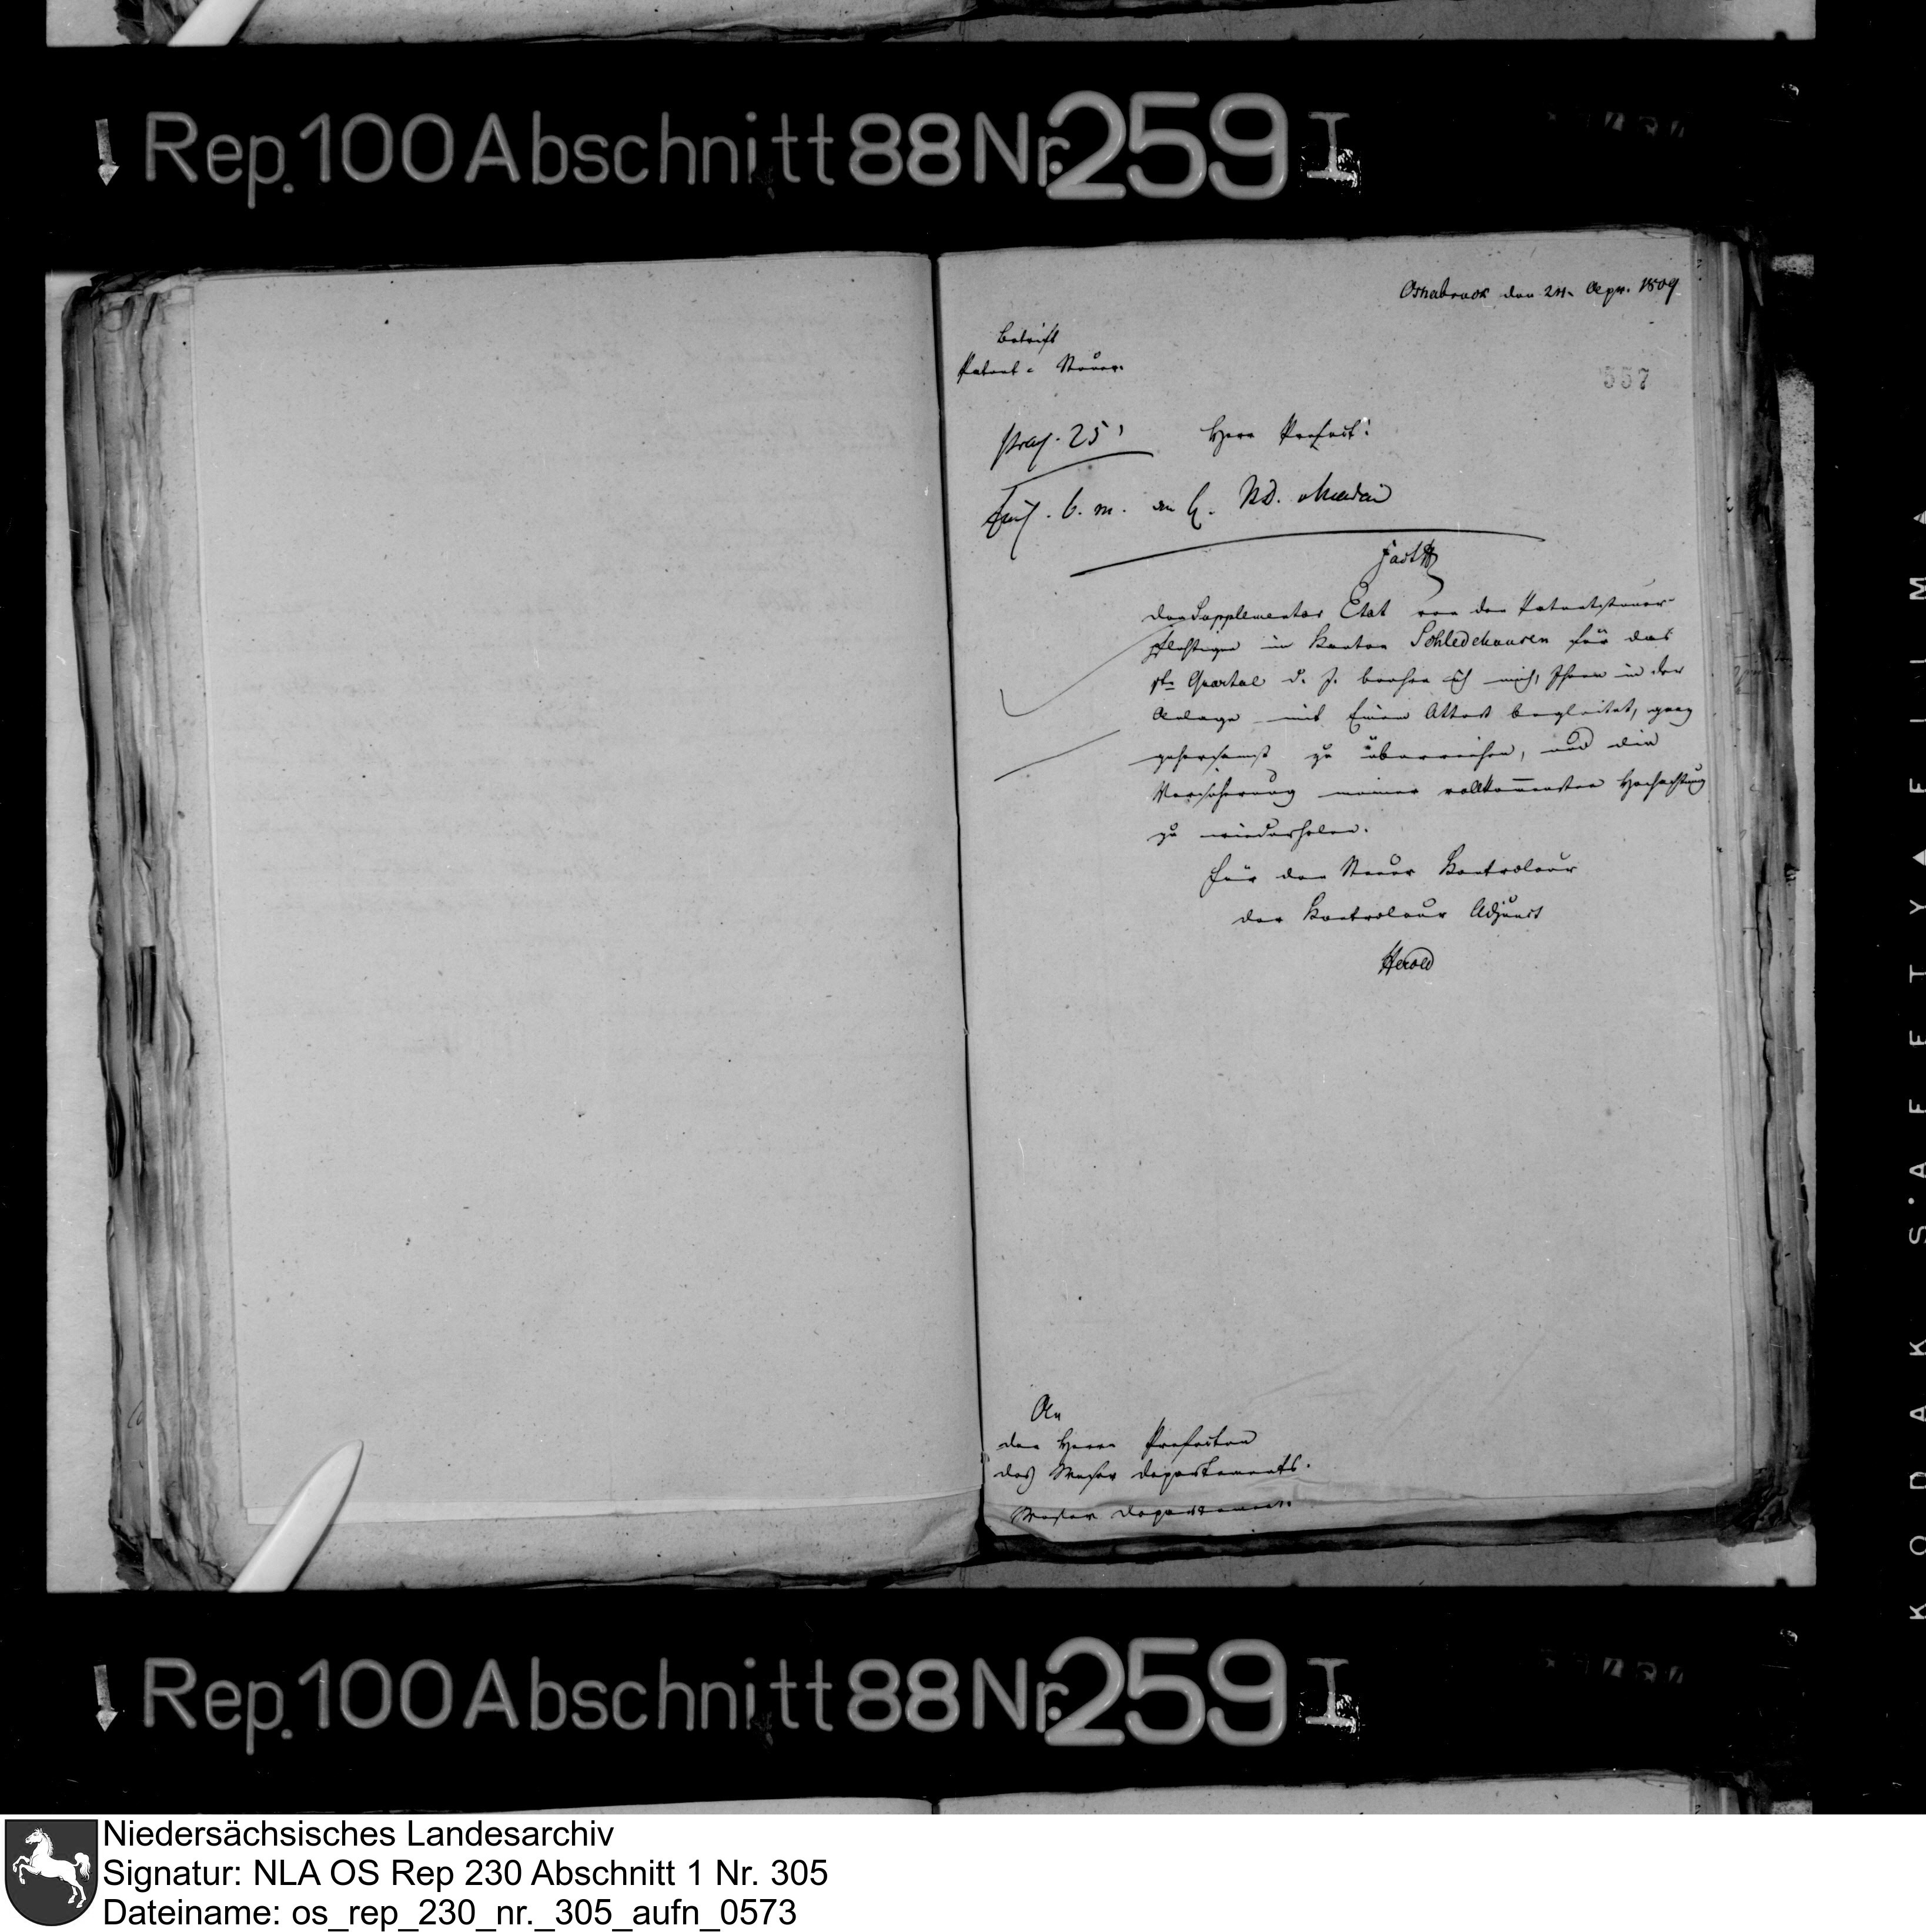 Rep. 100 Abschnitt 88 Nr. 259 I
Osnabruck den 24. Apr. 1809
Betrift
Patent-Steuer.
557
praes. 25
Herr Praefect!
b. m. an H.
Den Supplementar Etat von den Patentsteuer-
pflichtigen im Kanton Schledehausen für das
Quartal d. J. beehre ich mich, Ihnen in der
Anlage mit Einem Attest begleitet, ganz
gehorsamst zu überreichen, und die
Versicherung meiner vollkom̅ensten Hochachtung
zu wiederholen.
Für den Steuer Kontroleur
der Kontroleur Adjunct
Herold
An
den Herrn Praefecten
des Weser Departements.
Weser Departement.
Rep. 100 Abschnitt 88 Nr. 259 I
KODAK S'AFETY▲FILM▲
Niedersächsisches Landesarchiv
Signatur: NLA OS Rep 230 Abschnitt 1 Nr. 305
Dateiname: os_rep_230_nr._305_aufn_0573